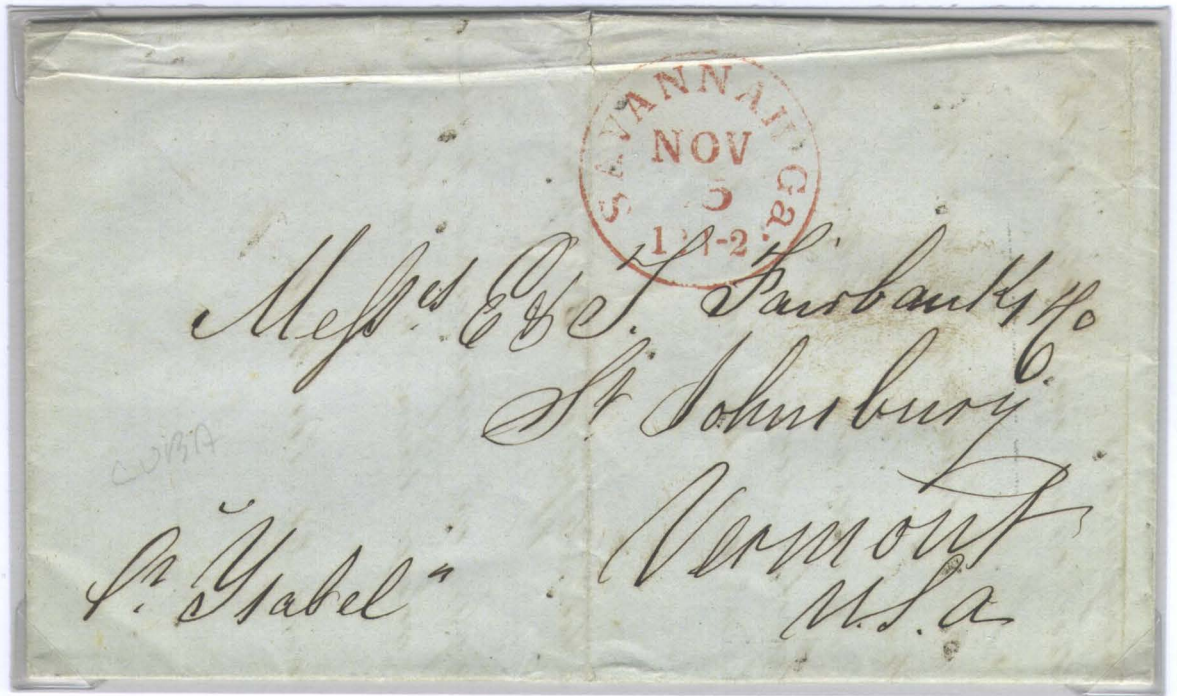 SAVANNAH Ga.
NOV
5
12½
Messrs E & T. Fairbanks & Co
St Johnsbury
Vermont
U.S.A
CUBA
Pr "Ysabel"